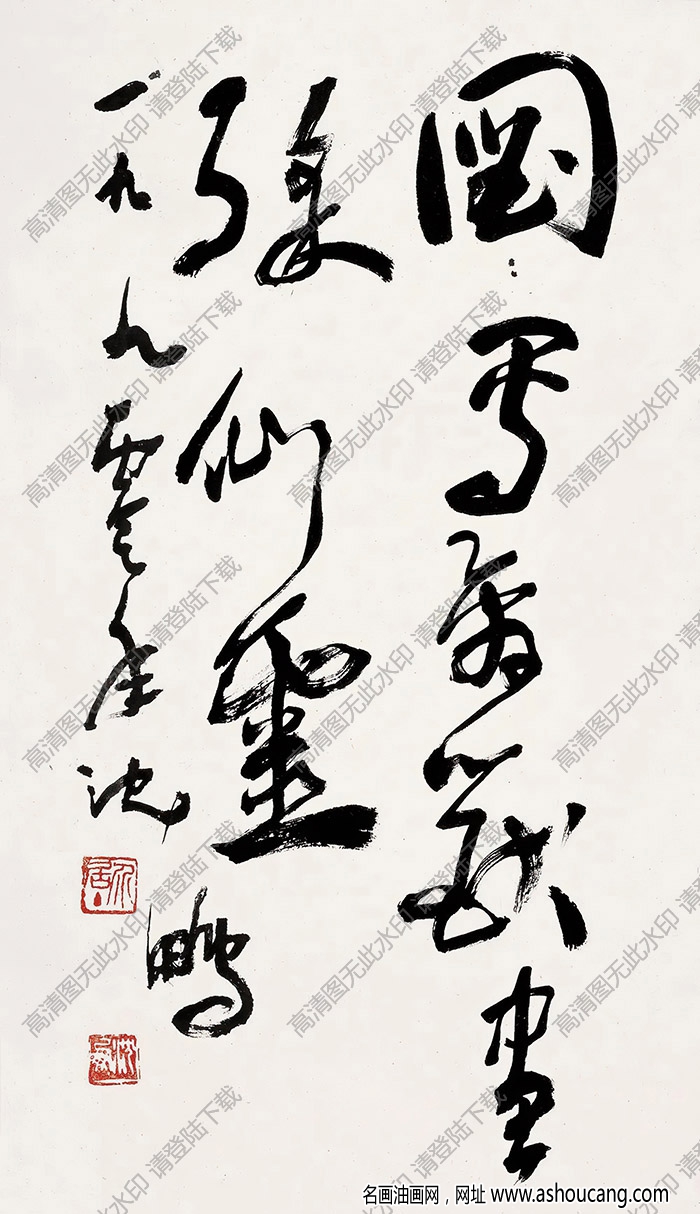 圖寫禽獸畫
綵仙靈
一九九零年沈鵬
高清图无此水印 请登陆下载
名画油画网，网址 www.ashoucang.com